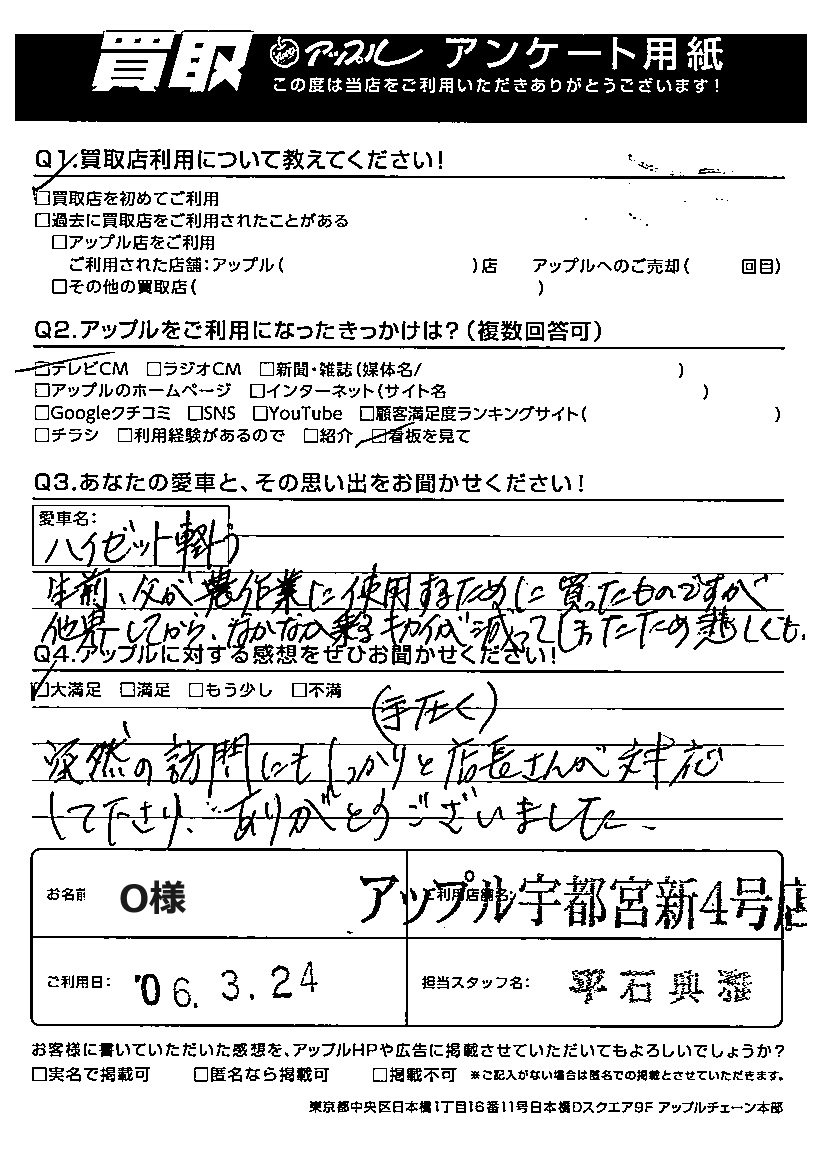 買取 アップル アンケート用紙
この度は当店をご利用いただきありがとうございます!
Q1.買取店利用について教えてください!
□買取店を初めてご利用
□過去に買取店をご利用されたことがある
□アップル店をご利用
ご利用された店舗:アップル( )店 アップルへのご売却( 回目)
□その他の買取店( )
Q2.アップルをご利用になったきっかけは?(複数回答可)
□テレビCM □ラジオCM □新聞・雑誌(媒体名/ )
□アップルのホームページ □インターネット(サイト名 )
□Googleクチコミ □SNS □YouTube □顧客満足度ランキングサイト( )
□チラシ □利用経験があるので □紹介 □看板を見て
Q3.あなたの愛車と、その思い出をお聞かせください!
愛車名:
ハイゼット軽トラ
生前、父が、農作業に使用するために買ったものですが
他界してから、なかなか乗るキカイが減ってしまったため悲しくも、
Q4.アップルに対する感想をぜひお聞かせください!
□大満足 □満足 □もう少し □不満
(手圧く)
突然の訪問にもしっかりと店長さんが対応
して下さり、ありがとうございました。
お名前 O様 ご利用店舗名: アップル宇都宮新4号店
ご利用日: '06. 3. 24 担当スタッフ名: 平石典雅
お客様に書いていただいた感想を、アップルHPや広告に掲載させていただいてもよろしいでしょうか?
□実名で掲載可 □匿名なら掲載可 □掲載不可 ※ご記入がない場合は匿名での掲載とさせていただきます。
東京都中央区日本橋1丁目16番11号日本橋Dスクエア9F アップルチェーン本部